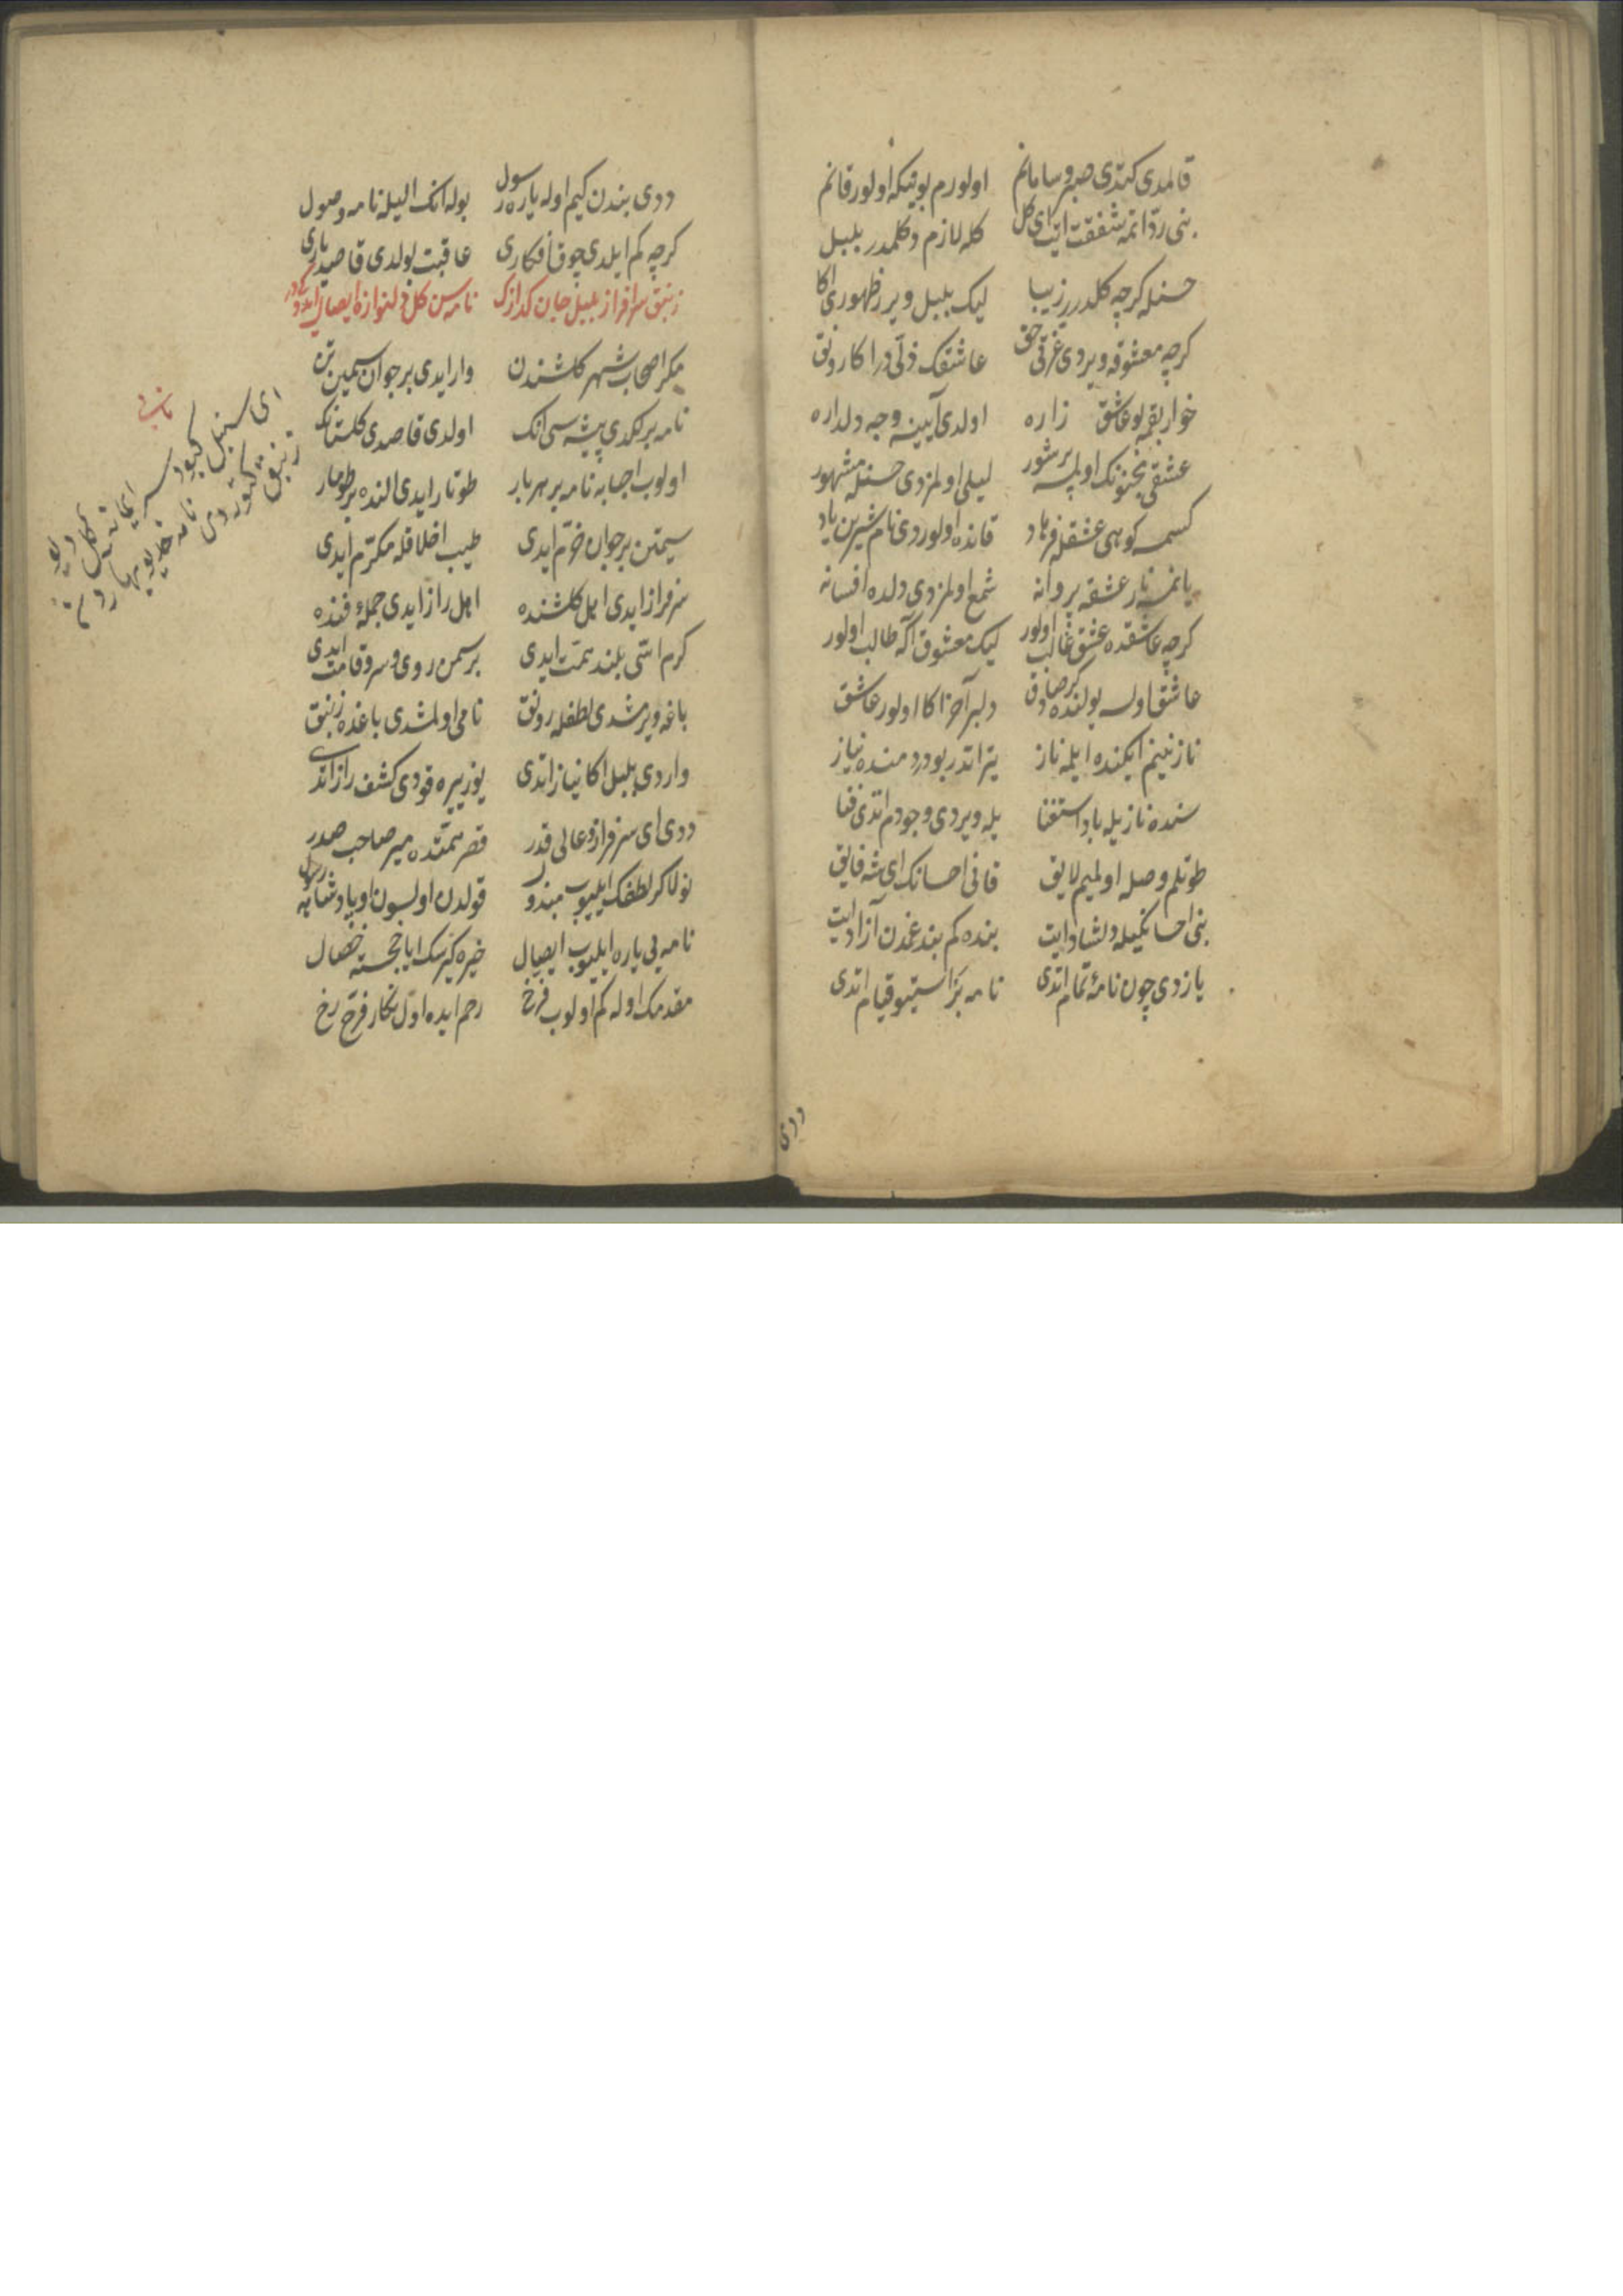 قالمدی کتدی صبر و سامانم اولورم بو نیکه اولور قانم
بنی ردّ اتمه شفقت ایت ای کل کله لازم دکلمدر بلبل
حسنله کرچه کلدر زیبا لیک بلبل ویرر ظهوری اکا
کرچه معشوقه ویردی عزّتی حق عاشقک ذلّی در اکا رونق
خوار بقمه بو عاشق زاره اولدی آیینه وجه دلداره
عشقی مجنونک اولمسه پرشور لیلی اولمزدی حسنله مشهور
کسمسه کوهی عشقله فرهاد قانده اولوردی نام شیرین یاد
یانمسه نار عشقه پروانه شمع اولمزدی دلده افسانه
کرچه عاشقده عشق غالب اولور لیک معشوق اکه طالب اولور
عاشق اولسه یولنده کر صادق دلبر آخر اکا اولور عاشق
نازنینم ایکنده ایلمه ناز یتر اتدر بو دردمنده نیاز
سنده نازیله باد استغنا یله ویردی وجودم اتدی فنا
طوتلم وصله اولمیم لایق قانی احسانک ای شه فایق
بنی احسانکیله دلشاد ایت بنده کم بند غمدن آزاد ایت
یازدی چون نامهٔ تمام اتدی نامه بر استیو قیام اتدی
ددی
ددی بندن کیم اوله یاره رسول بوله انک الیله نامه وصول
کرچه کم ایلدی چوق افکاری عاقبت بولدی قاصد یاری
زنبق سرافراز بلبل جان کدازک نامه سن کل دلنوازه ایصال ایدر
مکر اصحاب شهر کلشندن وار ایدی بر جوان سیمین تن
نامه برلکدی پیشه سی انک اولدی قاصدی کلستانک
اولوب احبابه نامه بر هر بار طوتار ایدی النده بر طومار
سیمتن بر جوان خرّم ایدی طیب اخلاقله مکرّم ایدی
سرفراز ایدی اهل کلشنده اهل راز ایدی جملهٔ فنده
کرم اتّی بلند همّت ایدی بر سمن روی و سرو قامت ایدی
باغه ویرمشدی لطفله رونق نامی اولمشدی باغده زنبق
واردی بلبل اکا نیاز اتدی یوزیره قودی کشف راز اتدی
ددی ای سرفراز و عالی قدر قصر همّتده میر صاحب صدر
نولا کر لطفک ایلیوب مبذول قولدن اولسون او پادشایه رسول
نامه یی یاره ایلیوب ایصال خیره کیرسک ایا خجسته خصال
مقدمک اوله کم اولوب فرّخ رحم ایده اوّل نکار فرّخ رخ
ای سنبل کبود
زنبق کتوردی نامه